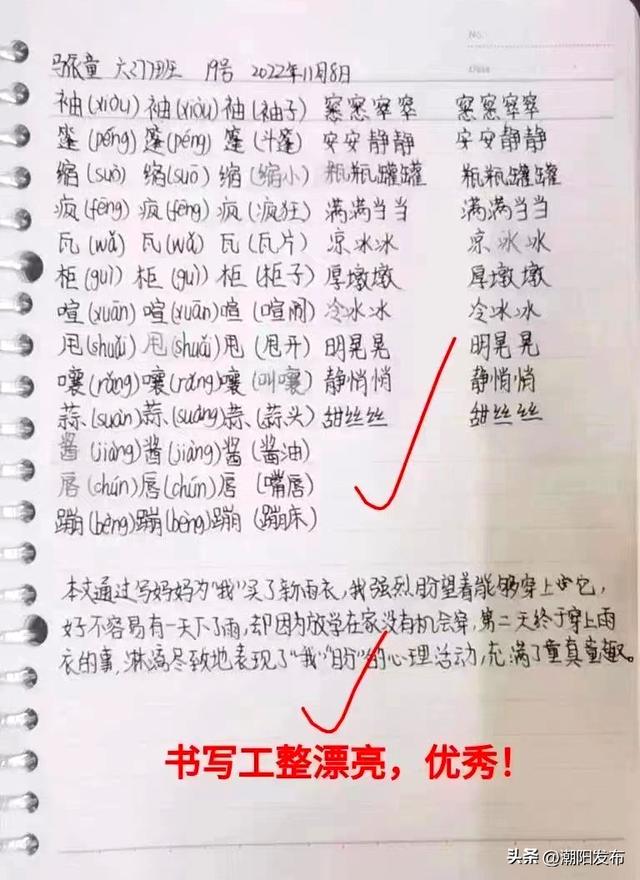 No.
Date
19号 2022年11月8日
袖(xiòu) 袖(xiòu) 袖(袖子) 窸窸窣窣 窸窸窣窣
篷(péng) 篷(péng) 篷(斗篷) 安安静静 安安静静
缩(suō) 缩(suō) 缩(缩小) 瓶瓶罐罐 瓶瓶罐罐
疯(fēng) 疯(fēng) 疯(疯狂) 满满当当 满满当当
瓦(wǎ) 瓦(wǎ) 瓦(瓦片) 凉冰冰 凉冰冰
柜(guì) 柜(guì) 柜(柜子) 厚墩墩 厚墩墩
喧(xuān) 喧(xuān) 喧(喧闹) 冷冰冰 冷冰冰
甩(shuǎi) 甩(shuǎi) 甩(甩开) 明晃晃 明晃晃
嚷(rǎng) 嚷(rǎng) 嚷(叫嚷) 静悄悄 静悄悄
蒜(suàn) 蒜(suàng) 蒜(蒜头) 甜丝丝 甜丝丝
酱(jiàng) 酱(jiàng) 酱(酱油)
唇(chún) 唇(chún) 唇(嘴唇)
蹦(bèng) 蹦(bèng) 蹦(蹦床)
本文通过写妈妈为“我”买了新雨衣,我强烈盼望着能够穿上它,
好不容易有一天下了雨,却因为放学在家没有机会穿,第二天终于穿上雨
衣的事,淋漓尽致地表现了“我”“盼”的心理活动,充满了童真童趣。
书写工整漂亮，优秀！
头条 @潮阳发布